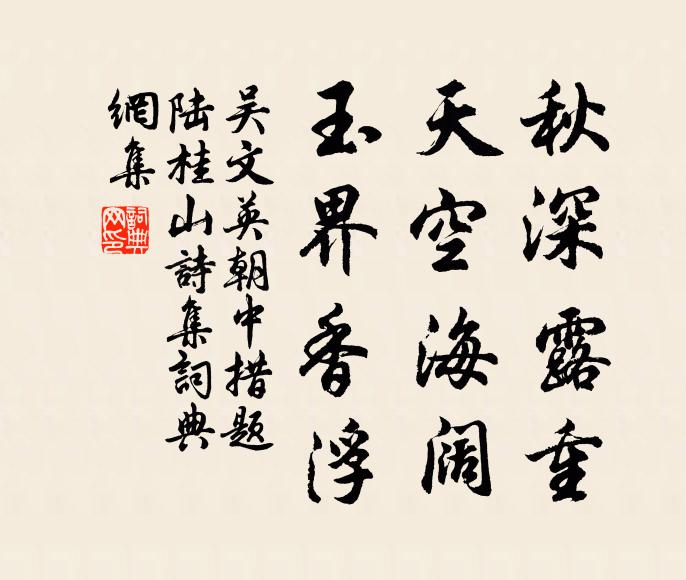 秋深露重
天空海阔
玉界香浮
吴文英朝中措题
陆桂山詩集詞典
網集
詞典
网印